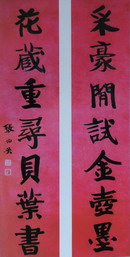 采豪閒試金壺墨
花藏重尋貝葉書